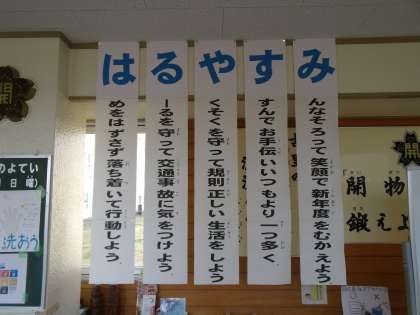 はるやすみ
めをはずさず落ち着いて行動しよう。
ールを守って交通事故に気をつけよう。
くそくを守って規則正しい生活をしよう
すんでお手伝いいつもより一つ多く。
んなそろって笑顔で新年度をむかえよう
のよてい
日曜)
洗おう
開物
鍛え上
開